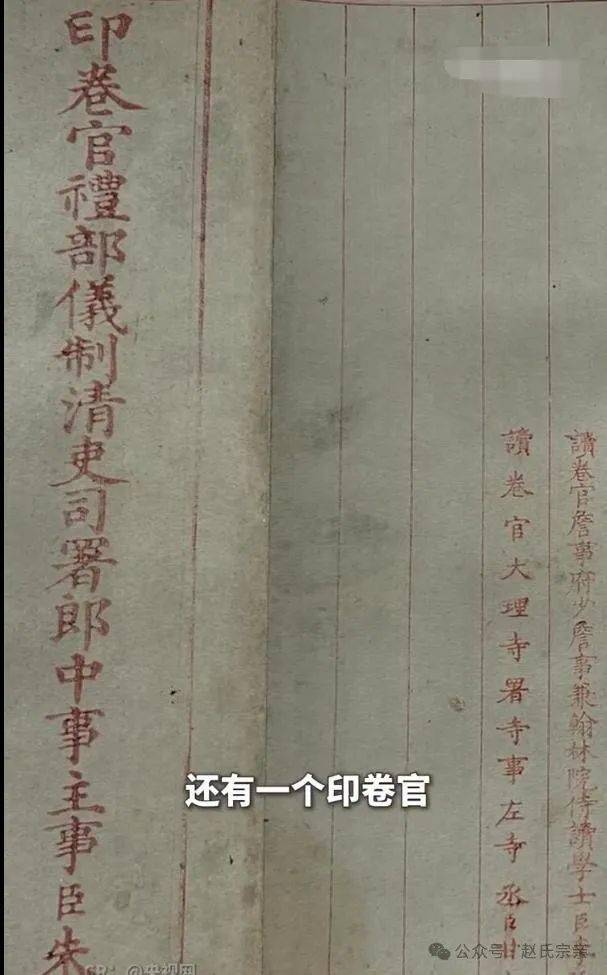 讀卷官詹事府少詹事兼翰林院侍讀學士臣
讀卷官大理寺署寺事左寺丞臣甘
印卷官禮部儀制清吏司署郎中事主事臣朱
还有一个印卷官
公众号·赵氏宗亲
@央视网